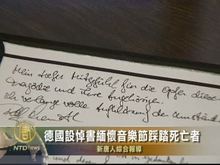 Mein tiefes Mitgefühl für die Opfer dieser
Tragödie und ihre Angehörigen.
Ich verlange volle Aufklärung der Umstände
NTD
德國設悼書緬懷音樂節踩踏死亡者
新唐人綜合報導